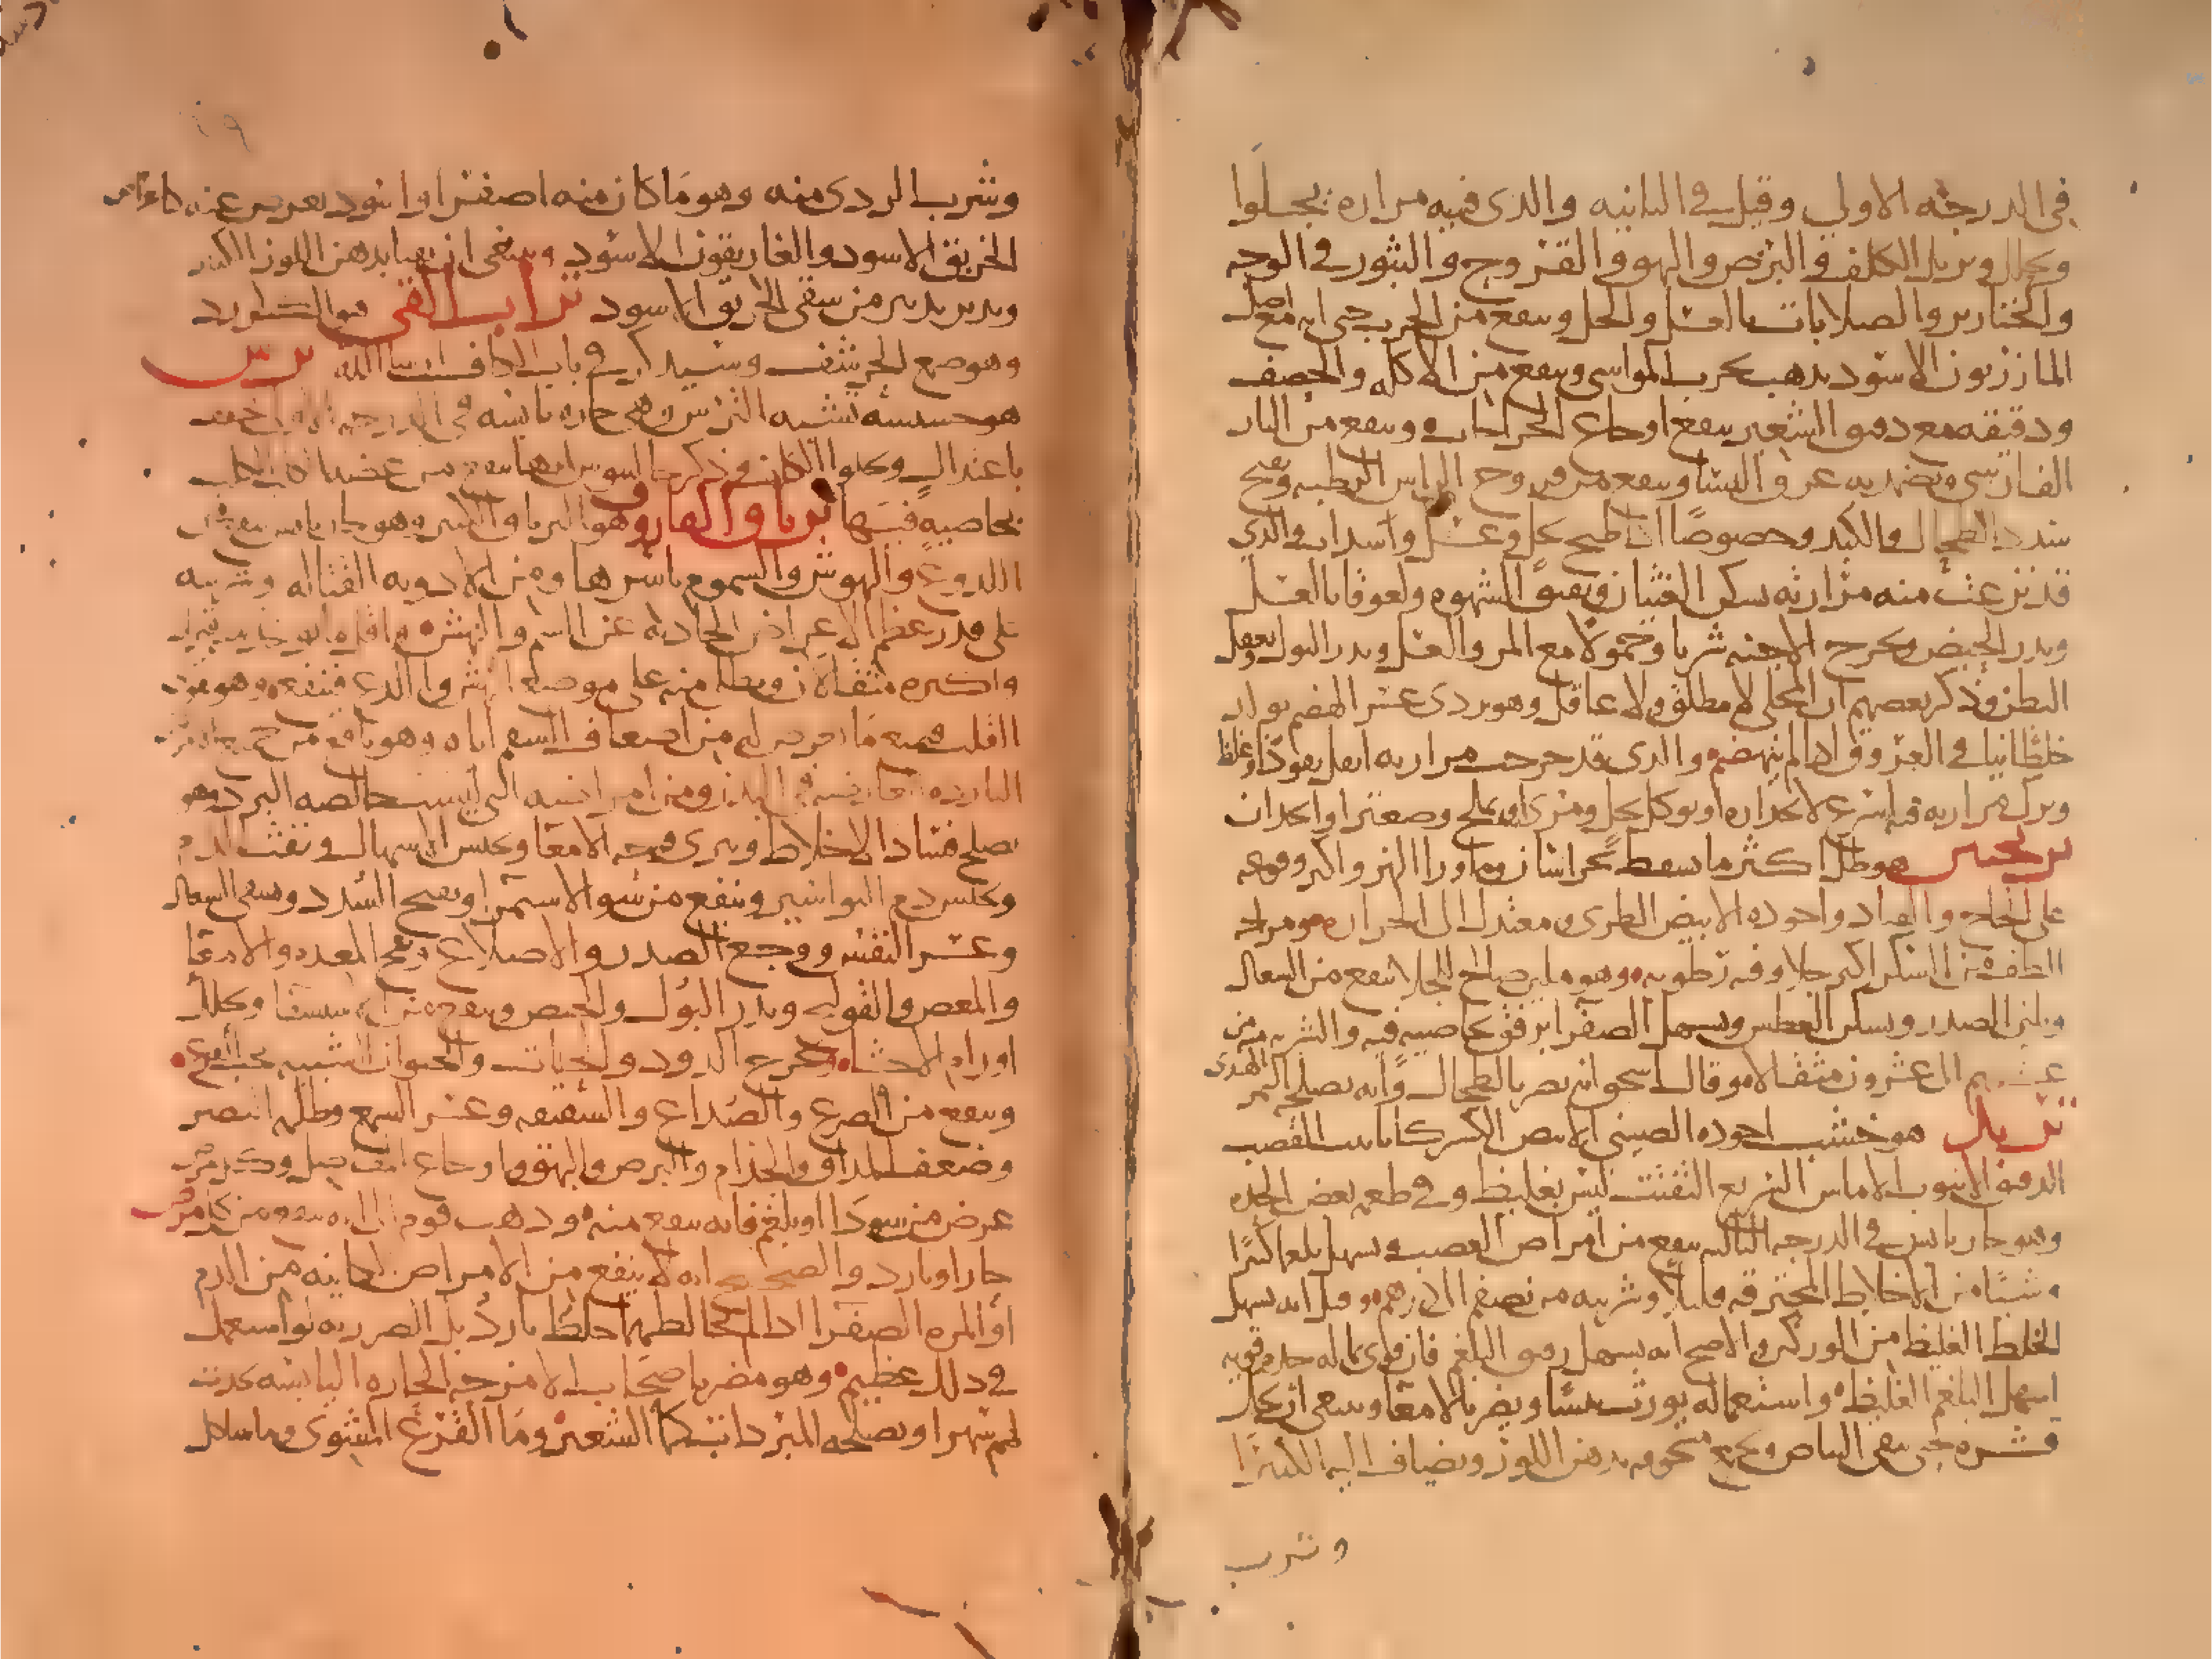 في الدرجه الاولى وقيل في الثانيه والذى فيه مراره يجلوا
ويحلل ويزيل الكلف والبرص والبهق والقروح والبثور في الوجه
والخنازير والصلابات بالعسل والخل وينفع من الجرب حتى انه مع اصل
المازريون الاسود يذهب بجرب المواشى وينفع من الاكله والحصف
ودقيقه مع دقيق الشعير ينفع اوجاع الخراجات وينفع من النار
الفارسى ويضمد به عرق النسا وينفع من قروح الراس الرطبه ويفتح
سدد الطحال والكبد وخصوصا اذا طبخ بخل وعسل وسداب والذى
قد نزعت منه مرارته يسكن الغثيان ويفتق الشهوه ولعوقا بالعسل
ويدر الحيض ويخرج الاجنه شربا وحمولا مع المر والعسل ويدر البول ويعقل
البطن وذكر بعضهم ان المحلى لا مطلق ولا عاقل وهو ردى عسر الهضم يولد
خلطا نيا في العروق اذا لم ينهضم والذى قد خرجت مرارته اثقل نفوذا واغلظ
وترك مرارته فيه اسرع لانحداره او يوكل بخل ومرى او بملح وصعتر او انجدان
ترنجبين هو طل اكثر ما يسقط بخراسان وما ورا النهر واكثر وقوعه
على الحاج واجوده الابيض الطرى ومعتدل الى الحراره
الطف من السكر اكثر جلا وفيه رطوبه وهو ملين صالح للجلا ينفع من السعال
ويلين الصدر ويسكن العطش ويسهل الصفرا برفق بخاصيه فيه والشربه منه من
عشره الى عشرون مثقالا وقال اسحق انه يضر بالطحال وانه يصلحه التمر الهندى
تربد هو خشب اجوده الصينى الابيض
الدقيق الانبوب الاملس السريع التفتت ليس بغليظ وفي طعمه بعض الحده
وهو حار يابس في الدرجه الثالثه ينفع من امراض العصب ويسهل بلغما كثيرا
وشيئا من الاخلاط المحترقه قليلا وشربته من نصف الى درهم وقيل انه يسهل
الخلط الغليظ من الوركين والاصح انه يسهل رقيق البلغم فان قوى بما له حده قويه
اسهل البلغم الغليظ واستعماله يورث يبسا ويضر بالامعا وينبغى ان يحك
قشره حتى يبقى البياض ويمزج مسحوقه بدهن اللوز ويضاف اليه الكثيرا
وشرب
وشرب الردى منه وهو ما كان منه اصفر او اسود يعرض عنه
الخربق الاسود والغاريقون الاسود وينبغى ان بدهن اللوز الكثير
ويدبر تدبير من سقى الخربق الاسود تراب القى هو الكنكرزد
وهو صمغ الحرشف وسيذكر في باب الكاف ان شا الله ترس
هو حشيشه تشبه الترس وهى حاره يابسه في الدرجه
باعتدال ويجلوا الكلف وذكر جالينوس انها تنفع من عضه الكلب الكلب
بخاصيه فيها ترياق الفاروق هو الترياق الكبير وهو حار يابس ينفع من
اللدوغ والنهوش والسموم باسرها ومن الادويه القتاله وشربه
على قدر عظم الاعراض الحادثه عن السم والنهش
واكثره مثقالان ويطلى منه على موضع النهش والدغ فينفعه وهو يقوى
القلب فيمنعه ما يعرض له من اضعاف السم اياه وهو نافع من
البارده التى ليست خالصه البرد وهو
يصلح فساد الاخلاط ويبرى قرحه الامعا ويحبس الاسهال ونفث الدم
ويحبس دم البواسير وينفع من سو الاستمرا ويفتح السدد وينقى السعال
وعسر النفس ووجع الصدر والاضلاع ونفخ المعده والامعا
والمغص والقولنج ويدر البول والحيض وينفع من الاستسقا ويحلل
اورام الاحشا ويخرج الدود والحيات والحيوان الشبيه بحب القرع
وينفع من الصرع والصداع والشقيقه وعسر السمع وظلمه البصر
وضعف المذاق والجذام والبرص والبهق واوجاع المفاصل وكل مرض
عرض من سودا او بلغم فانه ينفع منه وذهب قوم الى انه ينفع من كل مرض
حارا وبارد والصحيح انه لا ينفع من الامراض الكاينه من الدم
او المره الصفرا اذا لم يخالطهما خلط بارد بل الضرر به لو استعمل
في ذلك عظيم وهو مضر باصحاب الامزجه الحاره اليابسه يحدث
لهم سهرا ويصلحه المبردات كما الشعير وما القرع المشوى وما شاكل